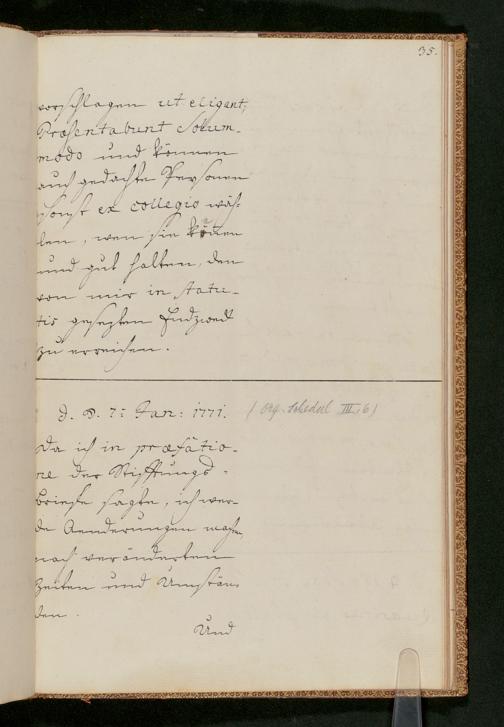 35.
vorschlagen ut eligant,
Præsentabunt solum-
modo und können
auch gedachte Personen
sonst ex collegio wäh-
len, wen sie können
und gut halten, den
von mir in statu-
tis gesezten Endzweck
zu erreichen.
d. D. 7: Jan: 1771. (Org. Schedul III, 6)
Da ich in præfatio-
ne der Stifftungs-
briefe sagte, ich wer-
de Aenderungen machen
nach veränderten
Zeiten und Umstän-
den.
Und